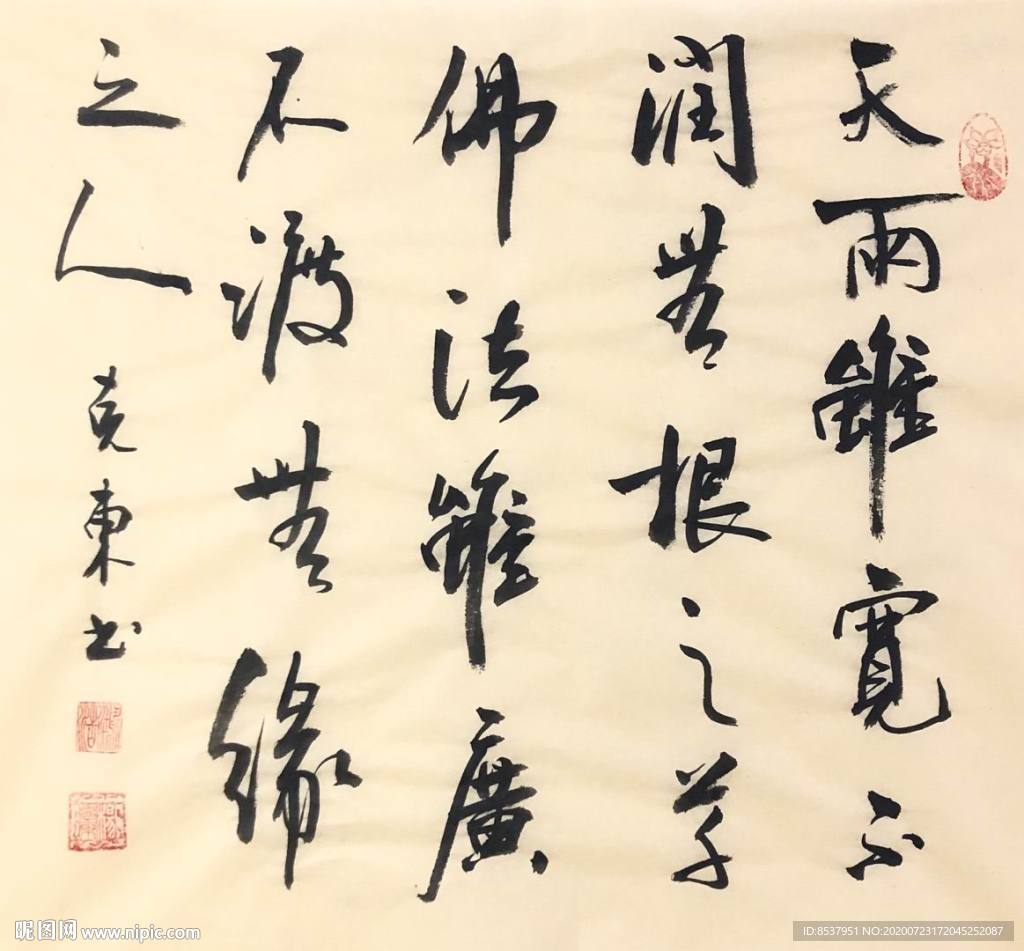 天雨雖寬不
潤無根之草
佛法雖廣
不渡無緣
之人
克東书
昵图网 www.nipic.com
ID:8537951 NO:20200723172045252087